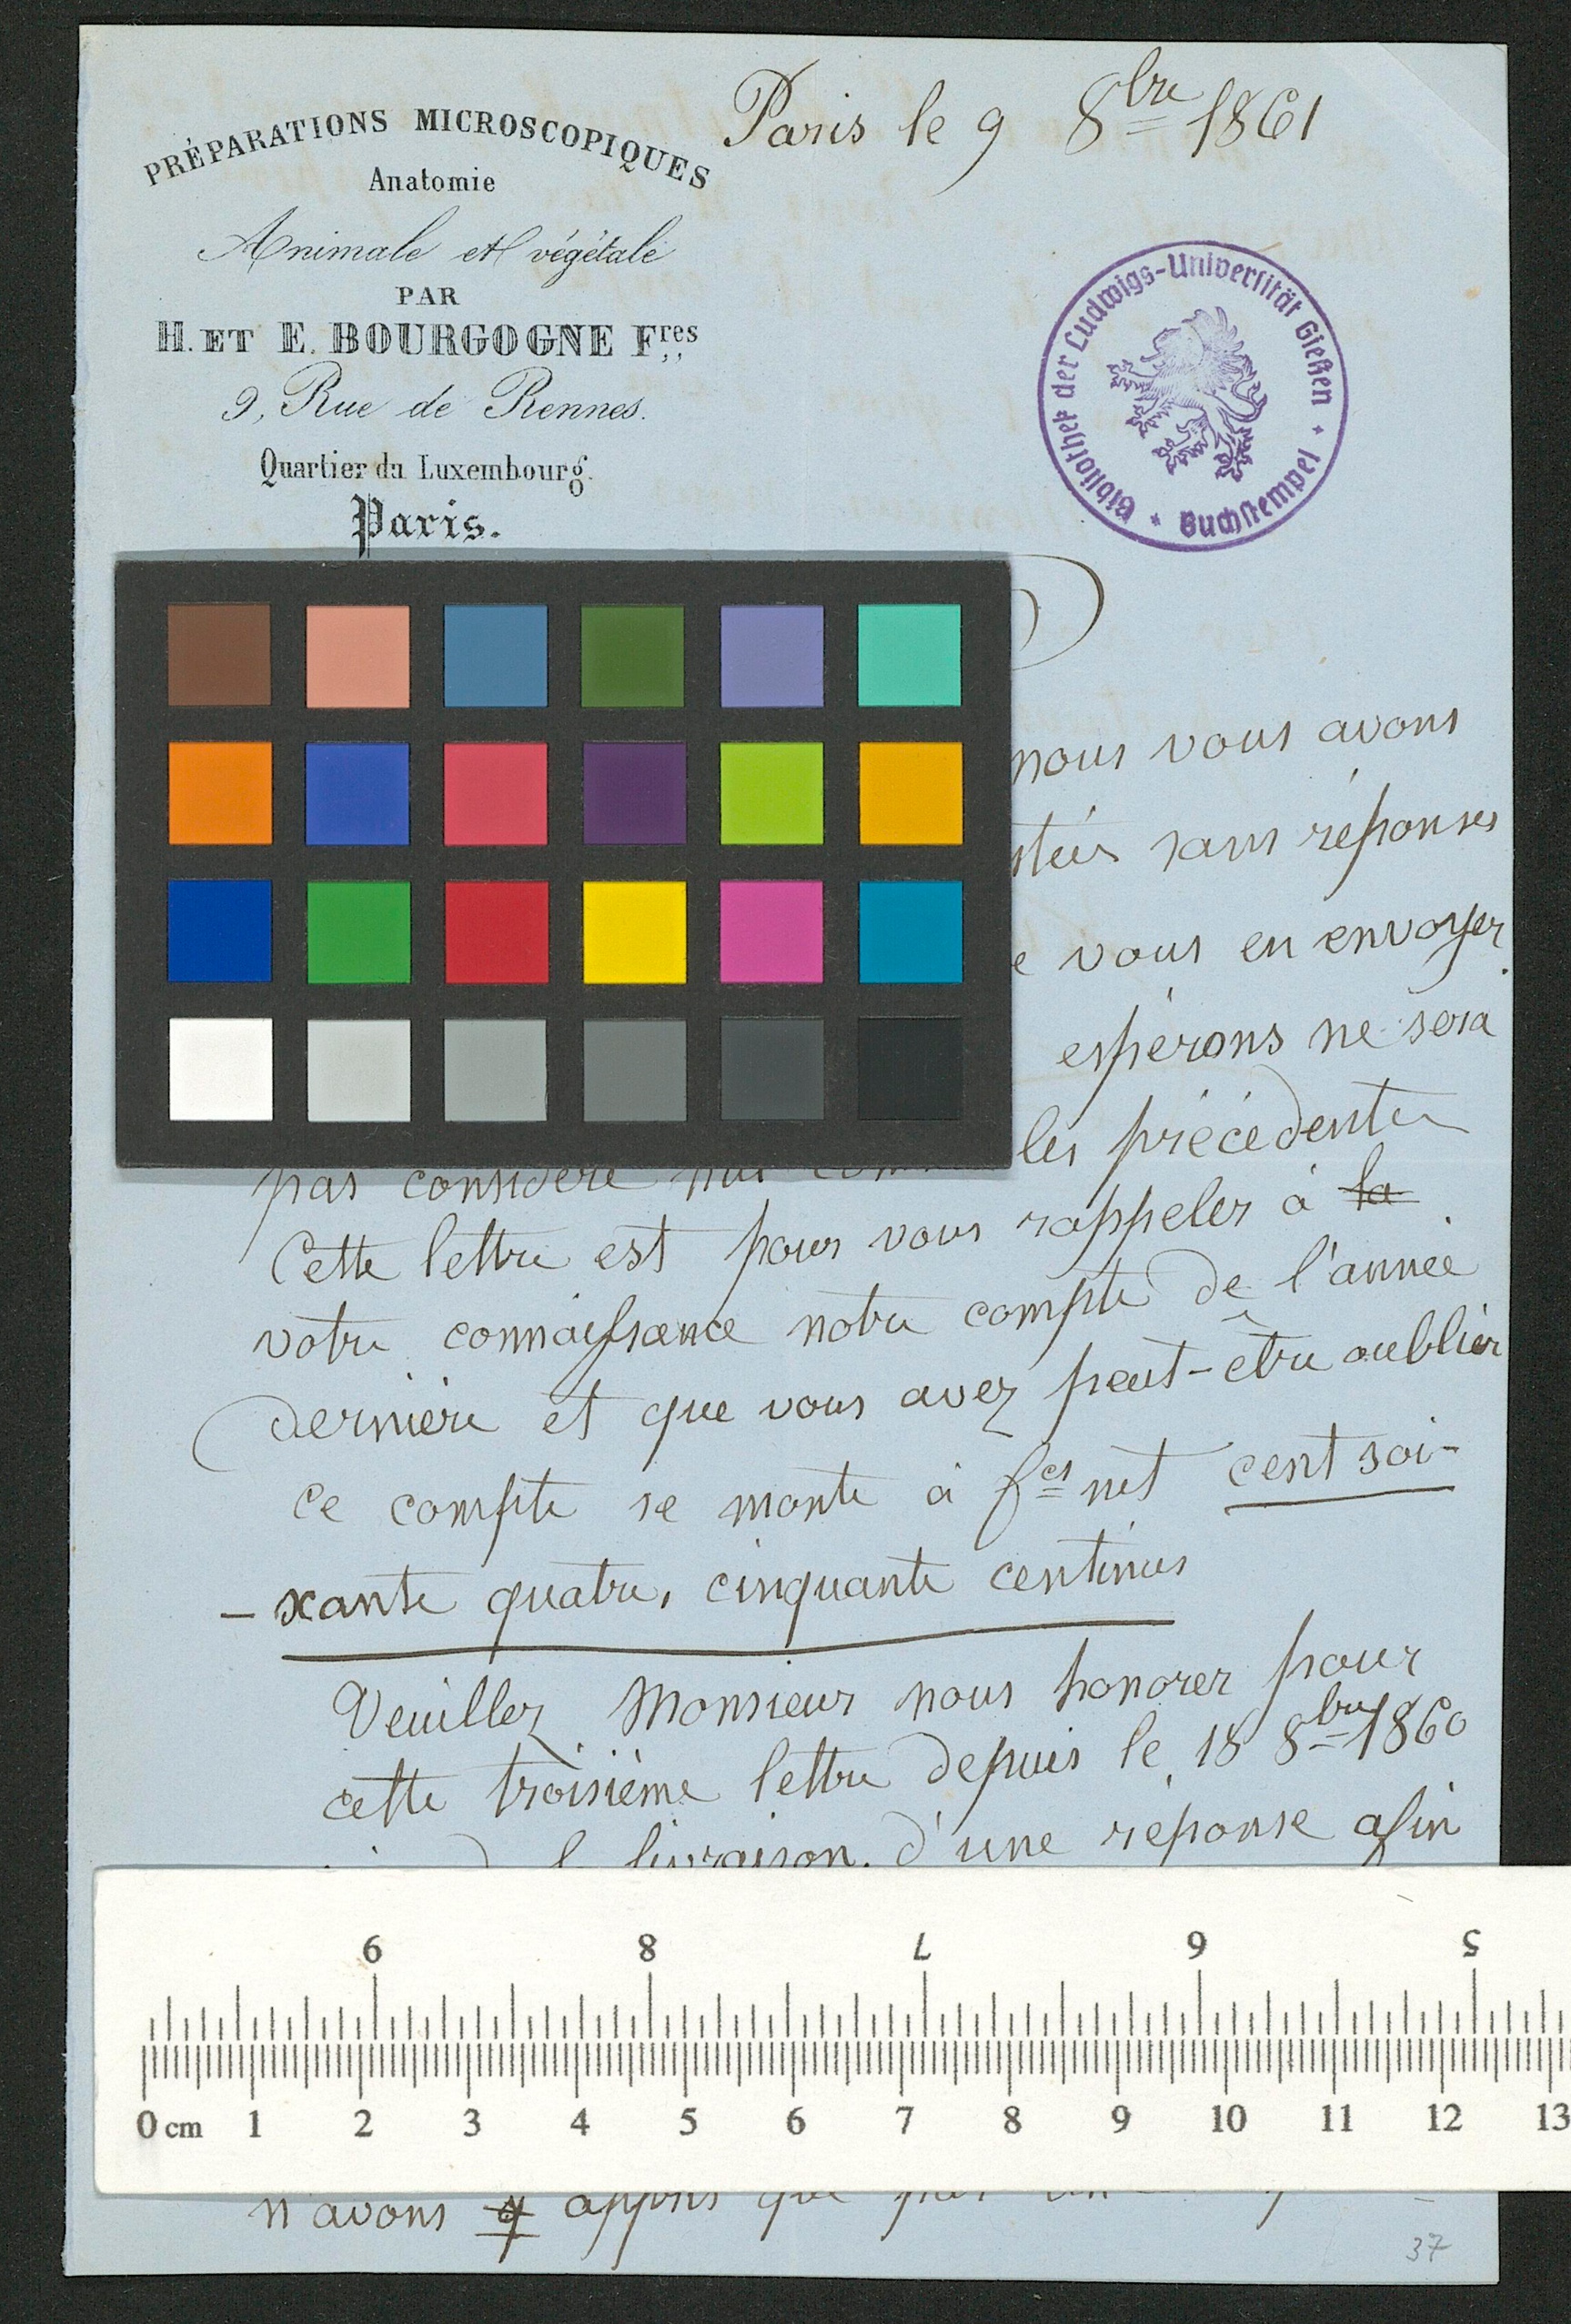 PRÉPARATIONS MICROSCOPIQUES
Anatomie
Animale et végétale
PAR
H. ET E. BOURGOGNE Fres
9, Rue de Rennes.
Quartier du Luxembourg.
Paris.
Paris le 9 8bre 1861
Bibliothek der Ludwigs-Universität Gießen * Buchstempel *
nous vous avons
sans réponses
vous en envoyer
espérons ne sera
pas considéré les précédentes
Cette lettre est pour vous rappeler à la
votre connaissance notre compte de l'année
dernière et que vous avez peut-être oublier
ce compte se monte à fcs net cent soi-
-xante quatre, cinquante centimes
Veuillez Monsieur nous honorer pour
cette troisième lettre depuis le 18 8bre 1860
livraison. d'une réponse afin
9 8 7 6 5
0 cm 1 2 3 4 5 6 7 8 9 10 11 12 13
n'avons appris que
37